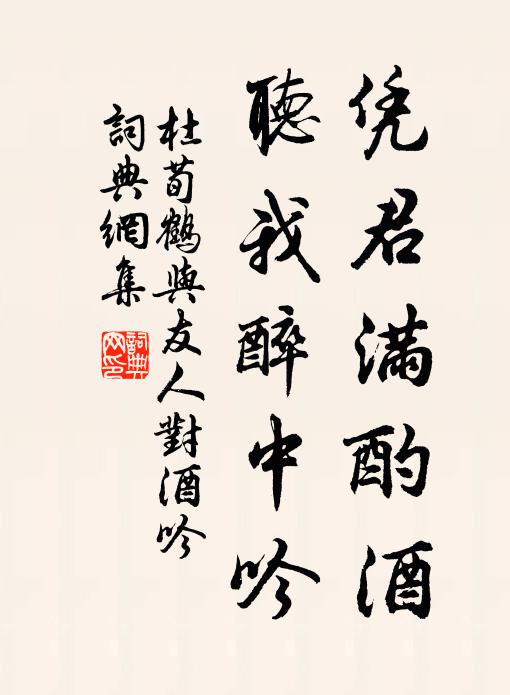 凭君满酌酒
聽我醉中吟
杜荀鶴與友人對酒吟
詞典網集
詞典
网印